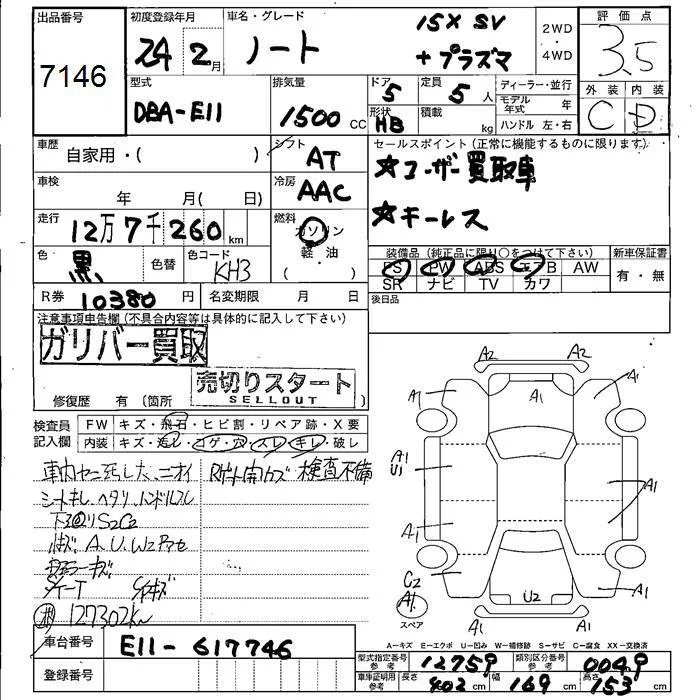 出品番号
7146
初度登録年月
24 2月
車名・グレード
ノート
15X SV
+プラズマ
2WD
・
4WD
評価点
3.5
外装 内装
C D
型式
DBA-E11
排気量
1500 CC
ドア
5
形状
HB
定員
5人
積載
kg
ディーラー・並行
モデル年式 年
ハンドル 左・右
車歴
自家用・( )
シフト
AT
セールスポイント(正常に機能するものに限ります)
☆ユーザー買取車
☆キーレス
車検
年 月( 日)
冷房
AAC
走行
12万7千260km
燃料
ガソリン
軽・油
( )
色
黒
色替
色コード
KH3
装備品(純正品に限り○をつけて下さい)
PS PW ABS エアB AW
SR ナビ TV カワ
新車保証書
有・無
R券 10380円
名変期限 月 日
後日品
注意事項申告欄(不具合内容等は具体的に記入して下さい)
ガリバー買取
売切りスタート
SELLOUT
修復歴 有(箇所 )
検査員記入欄
FW キズ・飛石・ヒビ割・リペア跡・X要
内装 キズ・汚レ・コゲ・穴・スレ・キレ・破レ
検査不備
シートキレ、ヘタリ、ハンドルスレ
S2C2
A、U、W2
127302km
A2 A2
A1 A1 A1
A1
U1
A1
A1
A1
C2
A1
スペア
U2
A1
A1
車台番号
E11-617746
登録番号
A-キズ E-エクボ U-凹み W-補修跡 S-サビ C-腐食 XX-交換済
型式指定番号 参考 12759
類別区分番号 参考 0049
車庫証明用 参考 長さ 402cm 幅 169cm 高さ 153cm